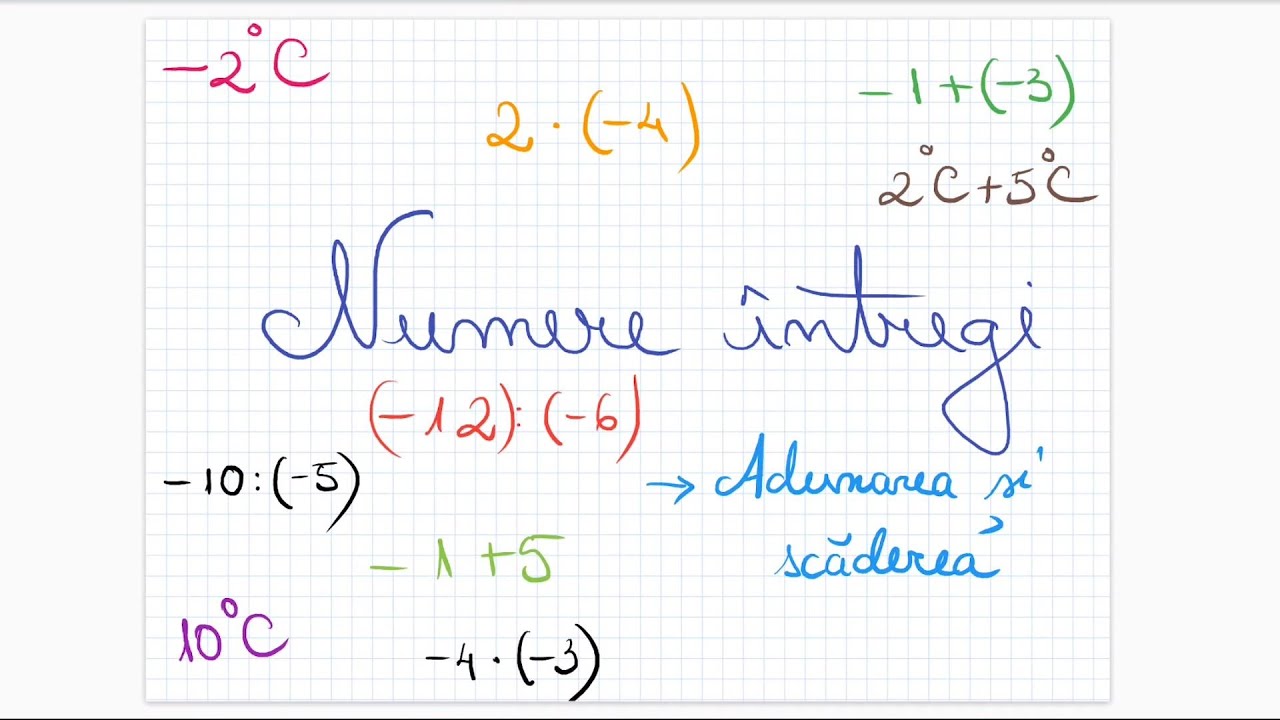 -2°C
2 · (-4)
-1+(-3)
2°C+5°C
Numere întregi
(-12):(-6)
-10:(-5)
→ Adunarea și
scăderea
-1+5
10°C
-4·(-3)